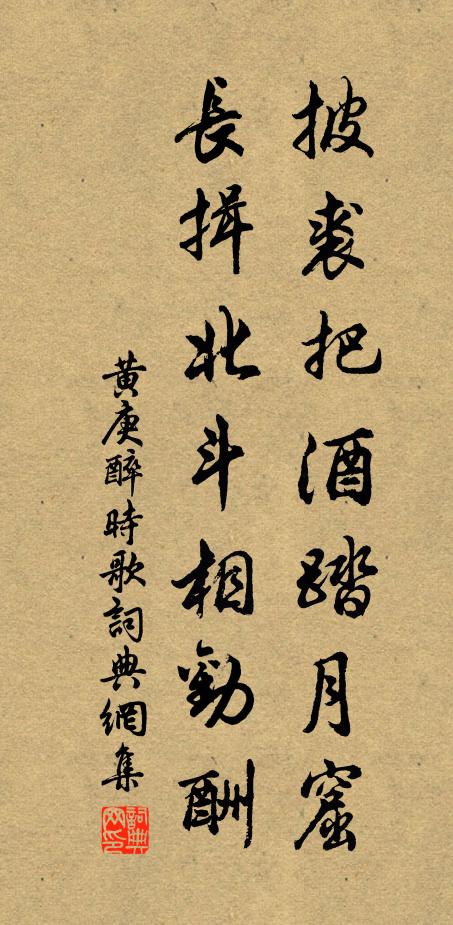 披裘把酒踏月窟
長揖北斗相勸酬
黃庚醉時歌詞典網集
詞典網印